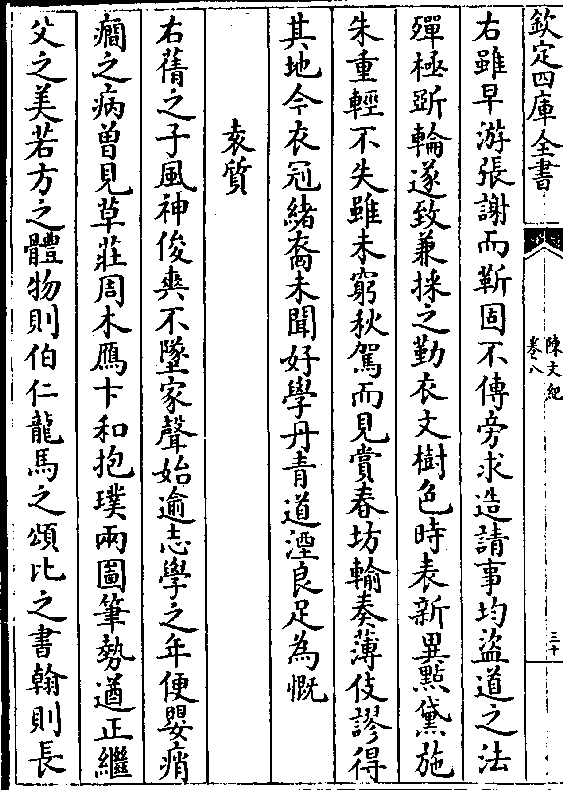 欽定四庫全書
陳文紀
卷八
三十
右雖早游張謝而靳固不傳旁求造請事均盜道之法
殫極斵輪遂致兼採之勤衣文樹色時表新異點黛施
朱重輕不失雖未窮秋駕而見賞春坊輸奏薄伎謬得
其地今衣冠緒裔未聞好學丹青道湮良足為慨
袁質
右蒨之子風神俊爽不墜家聲始逾志學之年便嬰痟
癎之病曽見草莊周木鴈卞和抱璞兩圖筆勢遒正繼
父之美若方之體物則伯仁龍馬之頌比之書翰則長